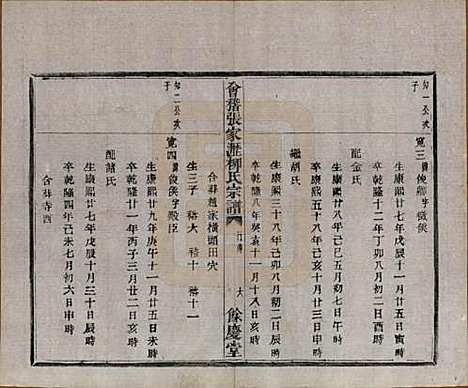 知一公次子
寬三 諱俊卿字敬侯
生康熙廿七年戊辰十一月廿五日寅時
卒乾隆十二年丁卯八月初二日酉時
配金氏
生康熙廿八年己巳五月初七日午時
卒康熙五十八年己亥十月廿三日寅時
繼胡氏
生康熙三十八年己卯八月初二日辰時
卒乾隆八年癸亥十一月十八日亥時
合葬趙家橫頭田穴
生三子 裕大 裕十 裕十一
會稽張家瀝柳氏宗譜
餘慶堂
知二公次子
寬四 諱俊侯字殿臣
生康熙廿九年庚午十一月廿五日亥時
卒乾隆廿一年丙子三月廿二日戌時
配諸氏
生康熙廿七年戊辰十月三十日辰時
卒乾隆四年己未七月初六日申時
合葬寺西